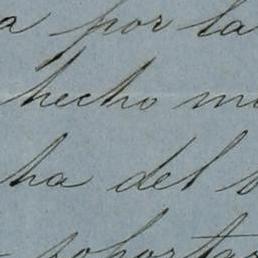 a por la
hecho m
ha del